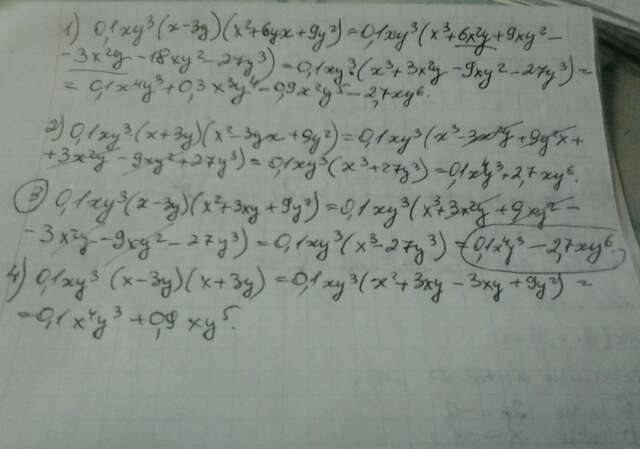 1) 0,1xy³(x-3y)(x²+6yx+9y²)=0,1xy³(x³+6x²y+9xy²-
-3x²y-18xy²-27y³)=0,1xy³(x³+3x²y-9xy²-27y³)=
=0,1x⁴y³+0,3x³y⁴-0,9x²y⁵-2,7xy⁶.
2) 0,1xy³(x+3y)(x²-3yx+9y²)=0,1xy³(x³-3x²y+9y²x+
+3x²y-9xy²+27y³)=0,1xy³(x³+27y³)=0,1x⁴y³+2,7xy⁶.
3) 0,1xy³(x-3y)(x²+3xy+9y²)=0,1xy³(x³+3x²y+9xy²-
-3x²y-9xy²-27y³)=0,1xy³(x³-27y³)=0,1x⁴y³-2,7xy⁶.
4) 0,1xy³(x-3y)(x+3y)=0,1xy³(x²+3xy-3xy+9y²)=
=0,1x⁴y³+0,9xy⁵.